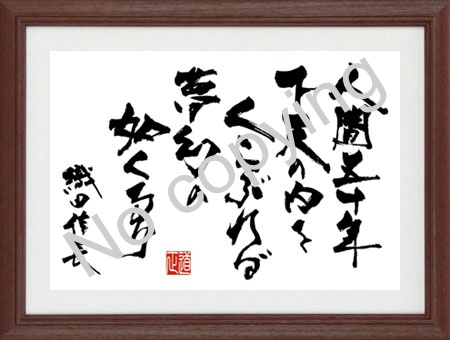 人間五十年
下天の内を
くらぶれば
夢幻の
如くなり
織田信長
No copying